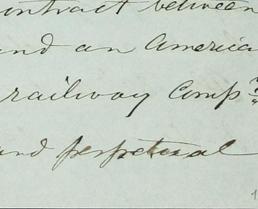 contract between
and an America
railway Compy
and perpetual